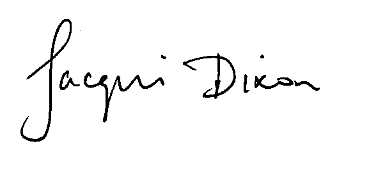 Jacqui Dixon